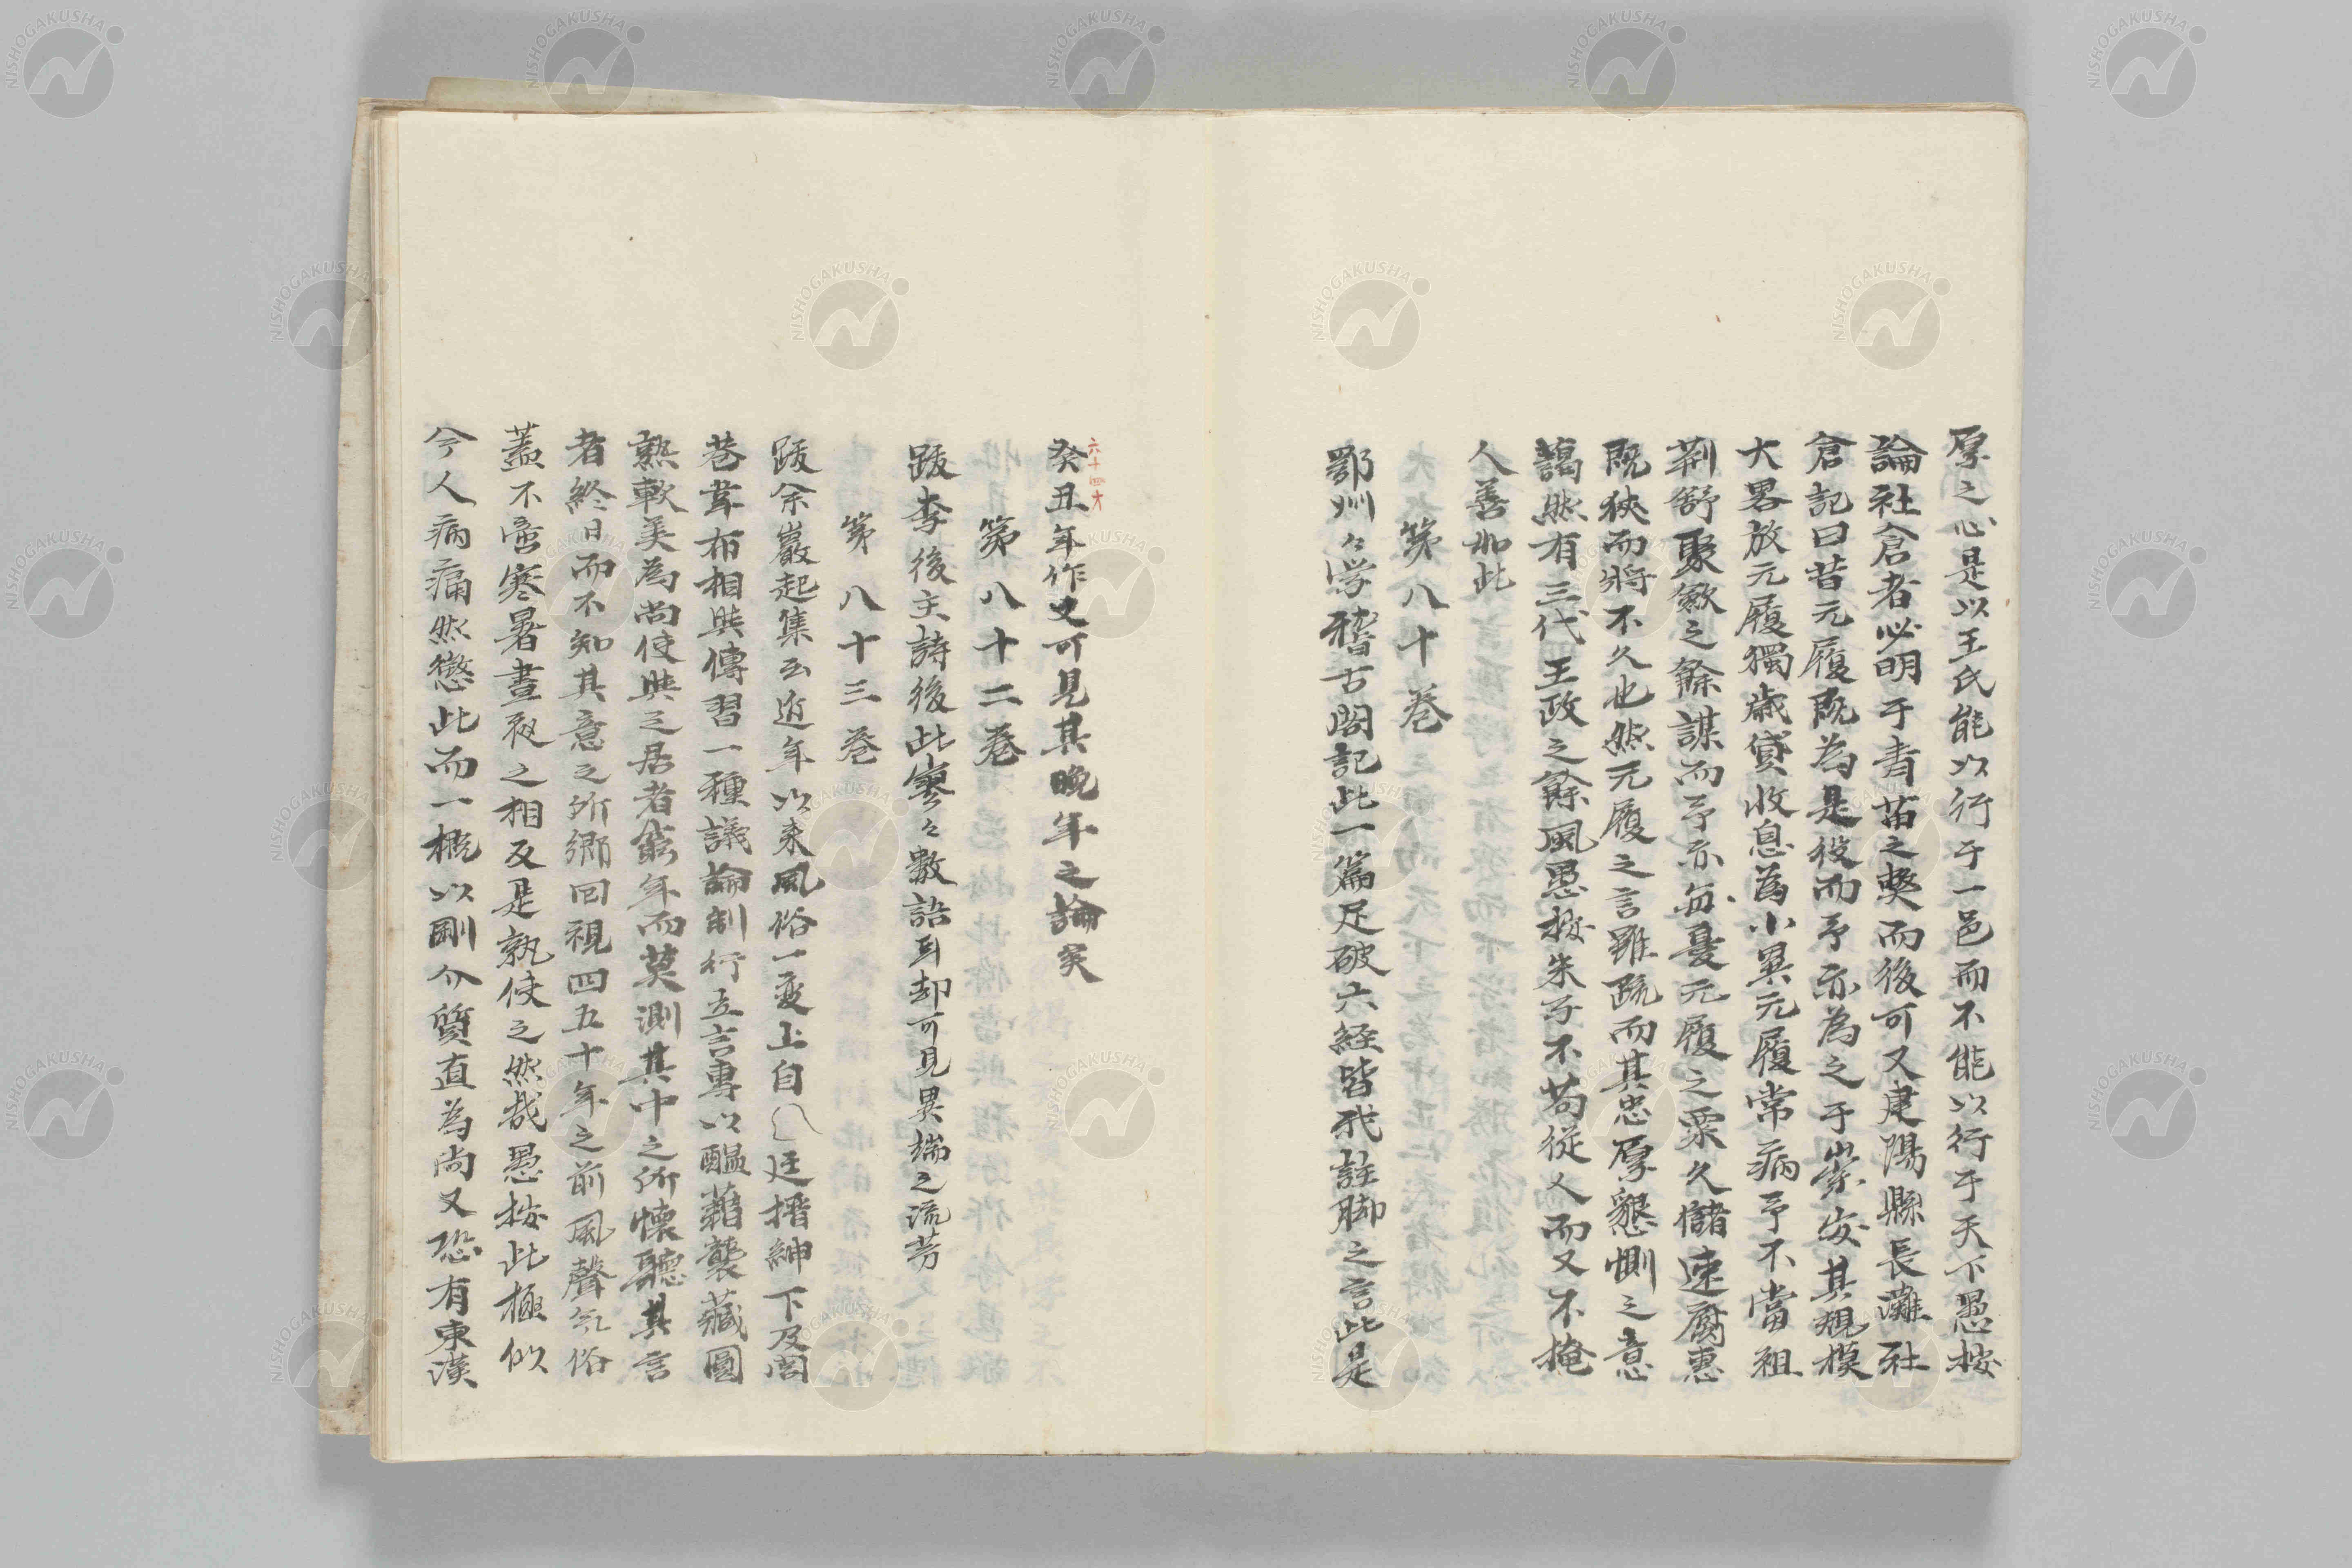 厚之心是以王氏能以行于一邑而不能以行于天下愚按
論社倉者必明于青苗之弊而後可又建陽縣長灘社
倉記曰昔元履既為是役而予亦為之于崇安其規模
大畧放元履獨歳貸收息為小異元履常病予不當祖
荊舒聚斂之餘謀而予亦每憂元履之粟久儲速腐惠
既狹而將不久也然元履之言雖疏而其忠厚懇惻之意
藹然有三代王政之餘風愚按朱子不苟従人而又不掩
人善如此
第八十巻
鄂州々学稽古閣記此一篇足破六経皆我註脚之言此是
六十四才
癸丑年作又可見其晩年之論矣
第八十二巻
跋李後主詩後此寥々數語耳却可見異端之流芳
第八十三巻
跋余巖起集云近年以来風俗一変上自廷搢紳下及閭
巷韋布相與傳習一種議論制行立言専以醞藉襲藏圓
熟軟美為尚使與之居者窮年而莫測其中之所懐聽其言
者終日而不知其意之所郷回視四五十年之前風聲気俗
蓋不啻寒暑晝夜之相反是孰使之然哉愚按此極似
今人病痛然懲此而一概以剛介質直為尚又恐有東漢